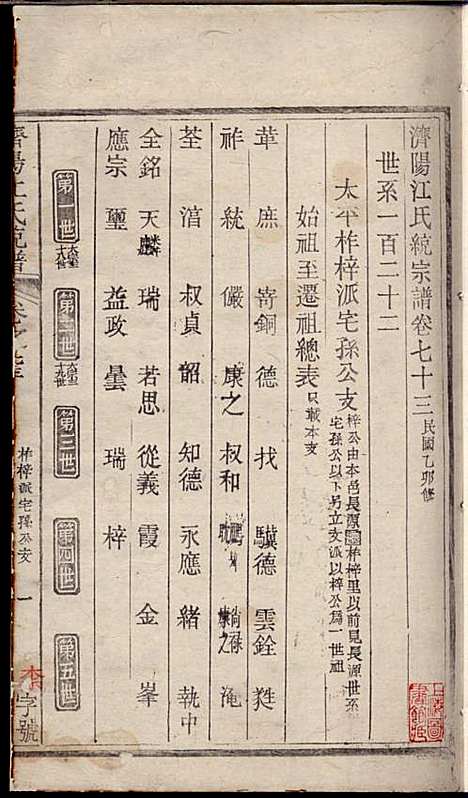 濟陽江氏統宗譜卷七十三 民國乙卯修
世系一百二十二
太平柞梓派宅孫公支 梓公由本邑長源遷柞梓里以前見長源世系
宅孫公以下另立支派以梓公爲一世祖
始祖至遷祖總表 只載本支
革 庶 寄 銅 德 找 驥德 雲銓 甡
祚 統 儼 康之 叔和 淹
荃 湻 叔貞 韶 知德 永應 緒 執中
全銘 天麟 瑞 若思 從義 霞 金 峯
應宗 璽 益政 曇 瑞 梓
第一世 第二世 第三世 第四世 第五世
柞梓派宅孫公支 一
字號